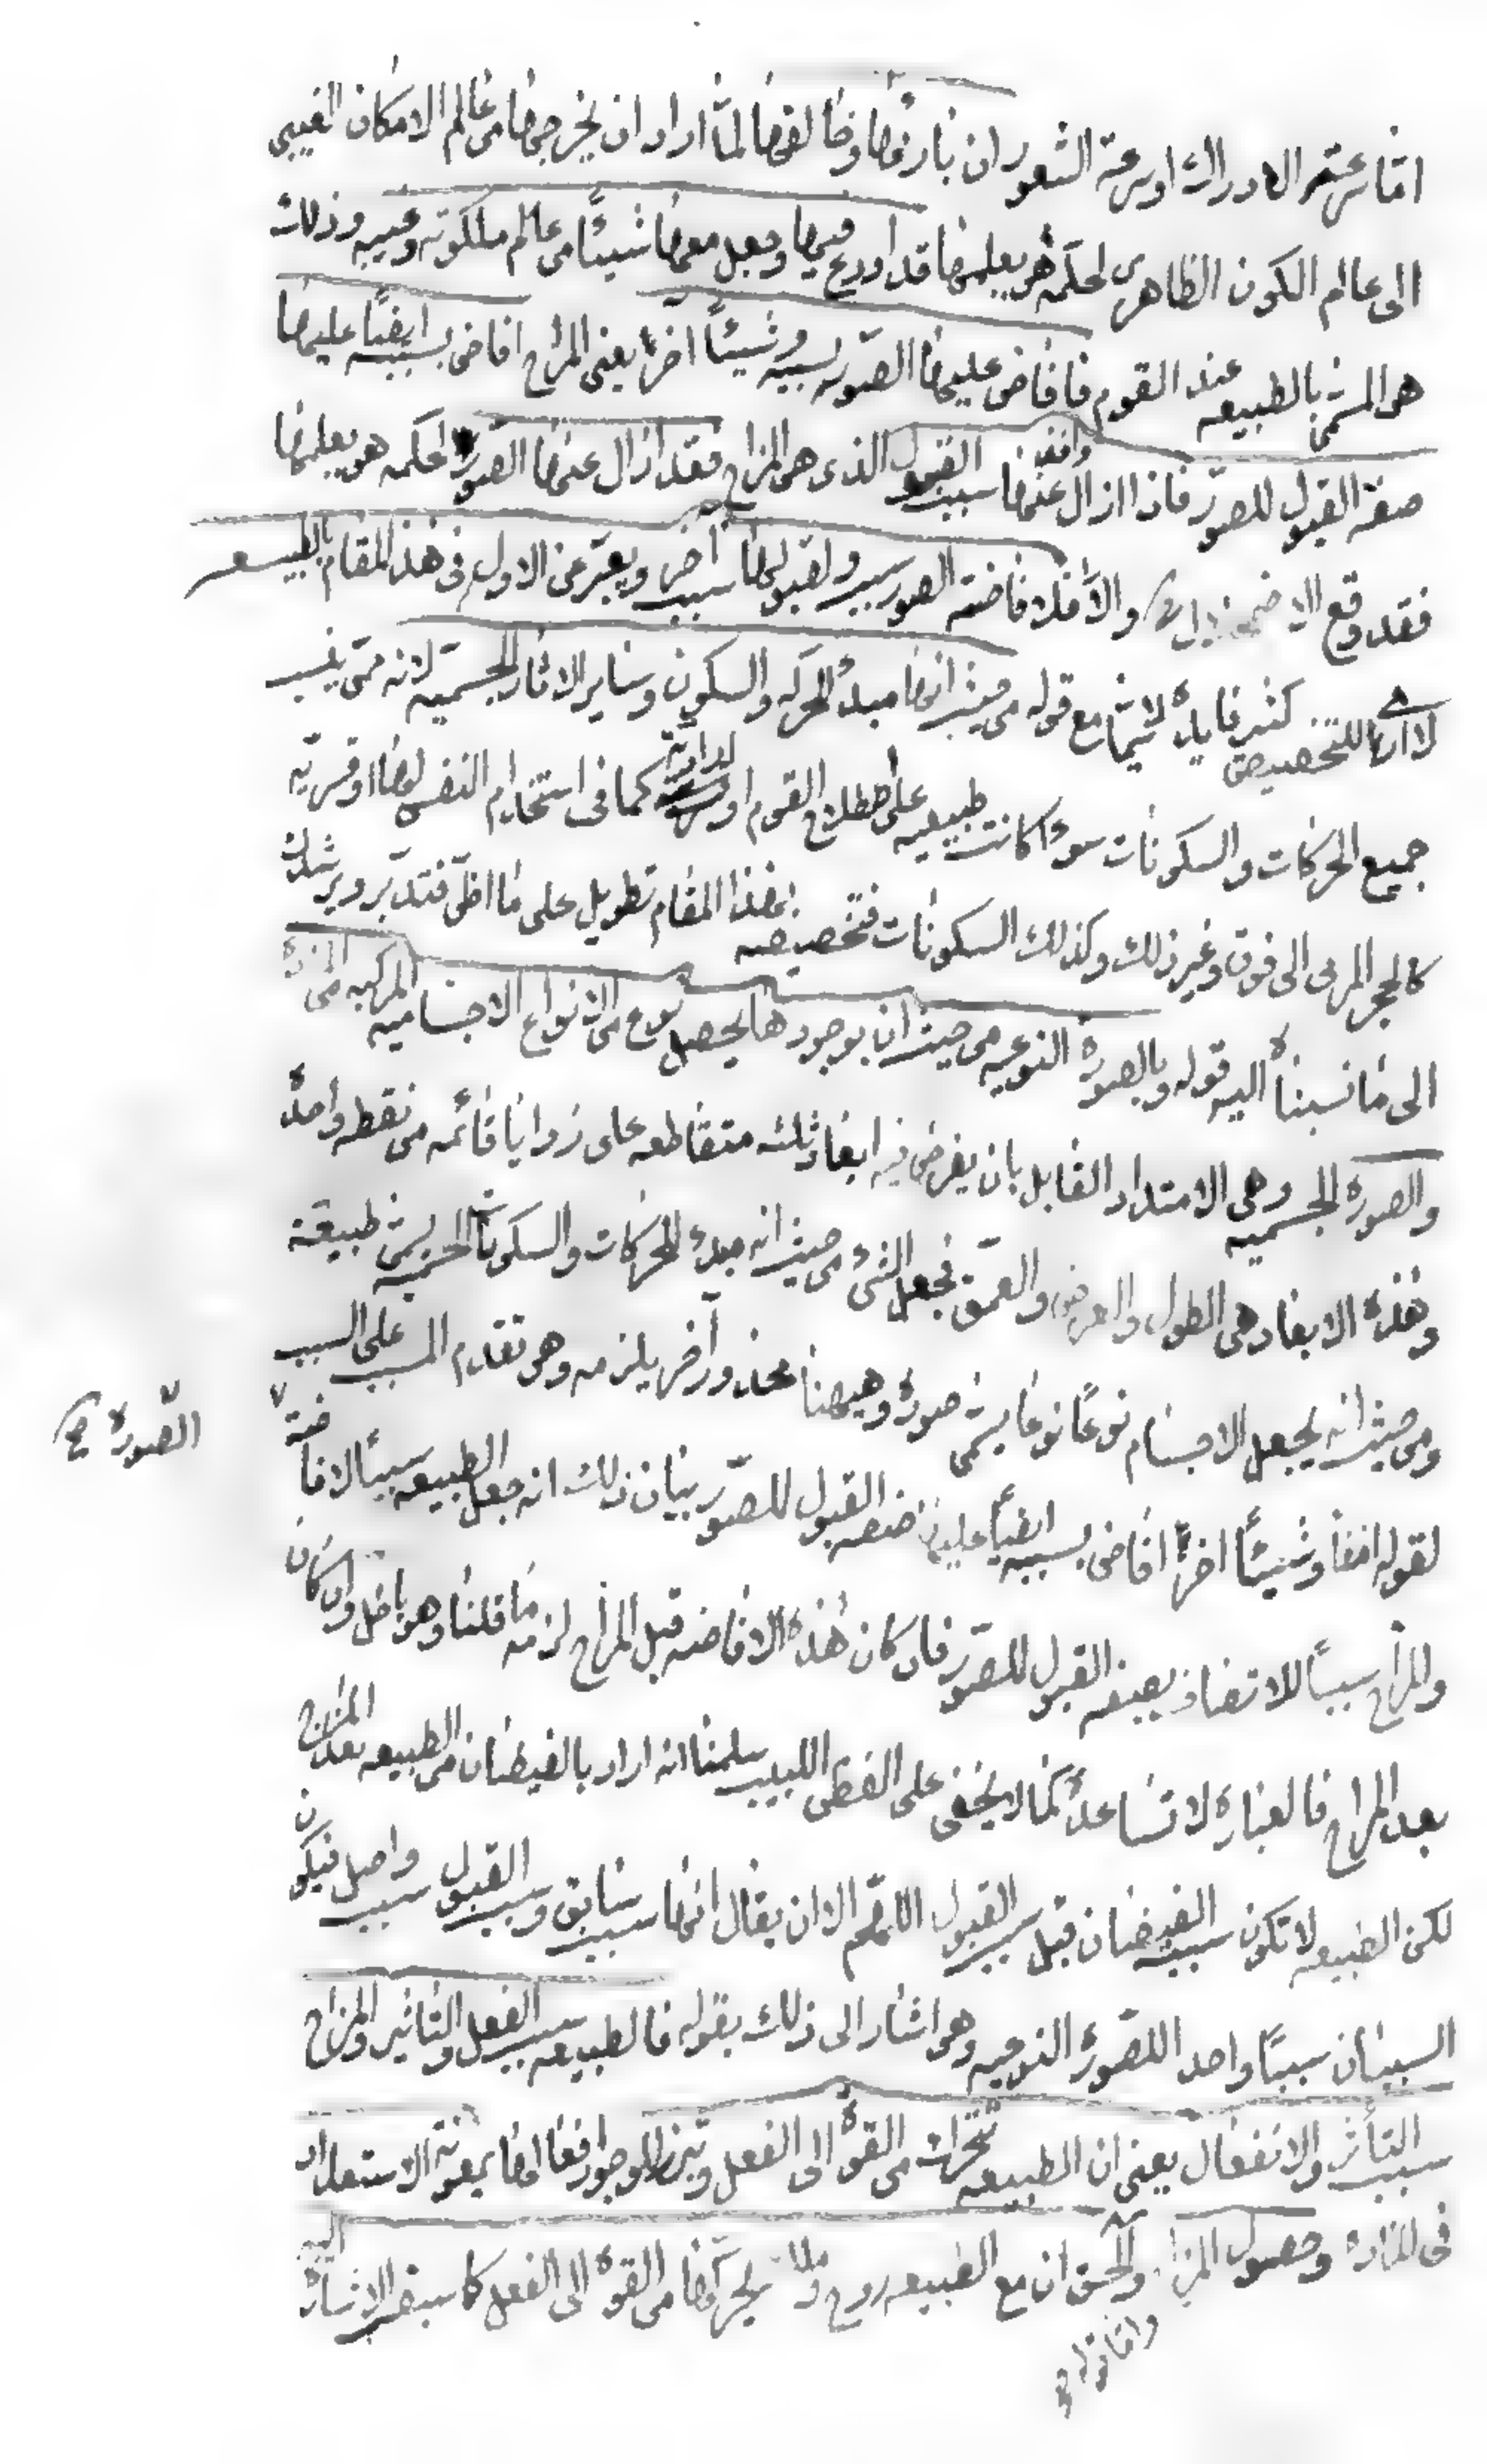 اما سرعة الادراك او سرعة الشعور ان بارئها وخالقها لما اراد ان يخرجها من عالم الامكان الغيبى
الى عالم الكون الظاهرى لحكمة هو يعلمها قد اودع فيها وجعل معها شيئًا من عالم ملكوته وغيبه وذلك
هو المسمى بالطبيعه عند القوم فافاض عليها الصور بسببه وشيئًا اخر يعنى المزاج افاض بسببه ايضًا عليها
صفة القبول للصور فاذا ازال عنها سبب القبول الذى هى المزاج فقد ازال عنها الصور لحكمه هو يعلمها
فقد وقع الاضمحلال والا فلا فاضة الصور سبب ولقبولها سبب اخر ويعبر عن الاول فى هذا المقام بالطبيعه
لا ارى للتخصيص كثير فايدة لا سيما مع قوله من حيث انها مبدء الحركه والسكون وساير الاثار الجسميه لانه متى ينسب
جميع الحركات والسكونات سوء كانت طبيعيه على اصطلاح القوم او ارادية كما فى استخدام النفس لها او قسريه
كالحجر المرمى الى فوق وغير ذلك وكذلك السكونات فتخصيصه بهذا المقام تطويل على ما اظن فتدبر ويرشدك
الى ما نسبناه اليه قوله وبالصورة النوعيه من حيث ان بوجودها يحصل نوع من الانواع الاجساميه المركبه من المادة
والصورة الجسميه وهى الامتداد القابل بان يفرض فيه ابعاد ثلث متقاطعه على زوايا قائمه من نقطه واحدة
وهذه الابعاد هى الطول والعرض والعمق فجعل الشىء من حيث انه مبدء للحركات والسكونات الجسميه يسمى طبيعة
ومن حيث انه يجعل الاجسام نوعًا نوعا يسمى صورة وهيهنا محذور آخر يلزمه وهو تقدم المسبب على السبب
لقوله انفا وشيئًا اخر افاض بسببه ايضًا عليها صفة القبول للصور بيان ذلك انه جعل الطبيعه سببًا لافاضة
الصورة صح
والمزاج سببًا للاتصاف بصفة القبول للصور فان كان هذه الافاضه قبل المزاج لزمه ما قلنا وهو باطل وان كان
بعد المزاج فالعبارة لا تساعده كما لا يخفى على الفطن اللبيب سلمنا انه اراد بالفيضان من الطبيعه بعد المزاج
لكن الطبيعه لا تكون سبب الفيضان قبل سبب القبول اللهم الا ان يقال انها سبب سابق وسبب القبول سبب واصل فيكون
السببان سببًا واحد اللصورة النوعيه وهو اشار الى ذلك بقوله فالطبيعه سبب الفعل والتأثير والمزاج
سبب التأثر والانفعال يعنى ان الطبيعه تحرك من القوة الى الفعل وتبرز للوجود افعالها بمعونة الاستعداد
فى المادة وحصول المزاج والحق ان مع الطبيعه روح يحركها من القوة الى الفعل كما سبق الاشارة اليه